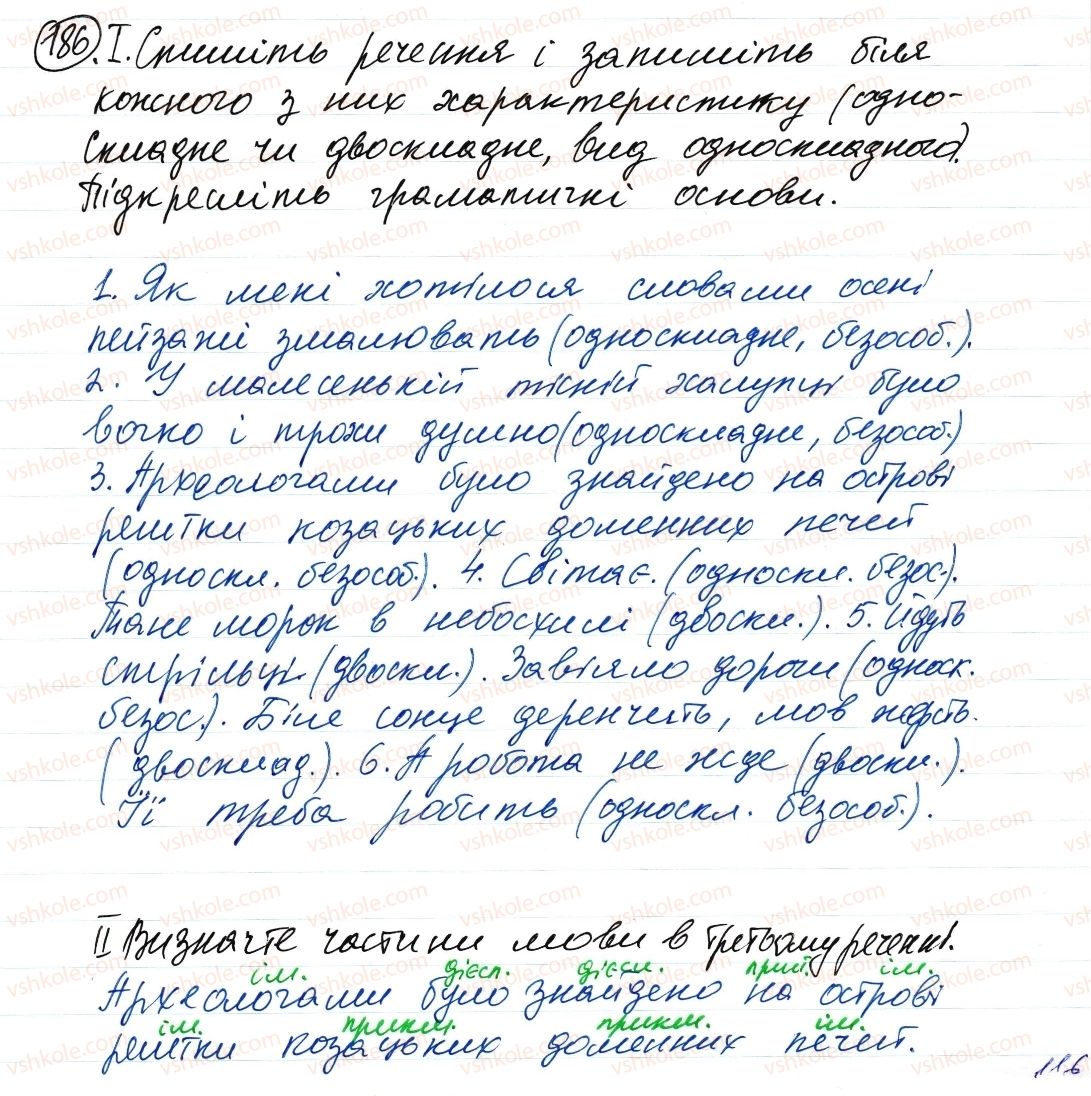 186. I. Спишіть речення і запишіть біля
кожного з них характеристику (одно-
складне чи двоскладне, вид односкладного).
Підкресліть граматичні основи.
1. Як мені хотілося словами осені
пейзажі змалювать (односкладне, безособ.).
2. У малесенькій тісній халупці було
вогко і трохи душно (односкладне, безособ.)
3. Археологами було знайдено на острові
рештки козацьких доменних печей
(односкл. безособ.). 4. Світає. (односкл. безос.).
Тане морок в небосхилі (двоскл.). 5. Йдуть
стрільці (двоскл.). Завіяло дороги (односк.
безос.). Біле сонце деренчить, мов жерсть.
(двосклад.). 6. А робота не жде (двоскл.).
Її треба робить (односкл. безособ.).
II Визначте частини мови в третьому реченні.
ім. дієсл. дієсл. прий. ім.
Археологами було знайдено на острові
ім. прикм. прикм. ім.
рештки козацьких доменних печей.
116